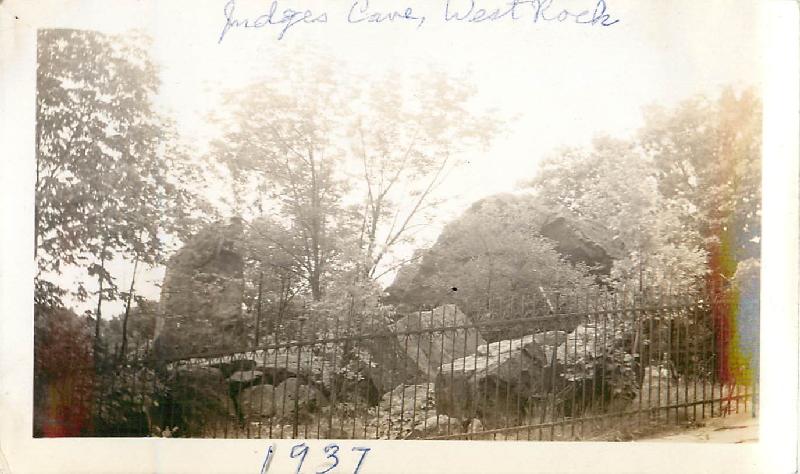 Judges Cave, West Rock
1937